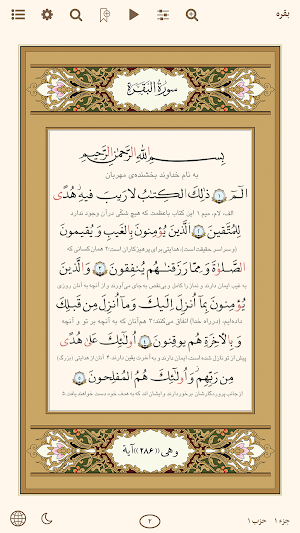 بقره
سورة البقرة
بِسْمِ اللَّهِ الرَّحْمَٰنِ الرَّحِيمِ
به نام خداوند بخشنده‌ی مهربان
الٓمٓ ۝١ ذَٰلِكَ الْكِتَابُ لَا رَيْبَ فِيهِ هُدًى
الف، لام، میم ۱ این کتاب باعظمت که هیچ شکّی درآن وجود ندارد
لِلْمُتَّقِينَ ۝٢ الَّذِينَ يُؤْمِنُونَ بِالْغَيْبِ وَيُقِيمُونَ
(و سراسر حقیقت است)، هدایتی برای پرهیزکاران است؛۲ همان کسانی که
الصَّلَاةَ وَمِمَّا رَزَقْنَاهُمْ يُنْفِقُونَ ۝٣ وَالَّذِينَ
به غیب ایمان دارند و نماز را کامل وبی‌نقص به‌جای می‌آورند و از آنچه به آنان روزی
يُؤْمِنُونَ بِمَا أُنْزِلَ إِلَيْكَ وَمَا أُنْزِلَ مِنْ قَبْلِكَ
داده‌ایم، (درراه خدا) انفاق می‌کنند؛۳ هم‌آنان که به آنچه بر تو و آنچه
وَبِالْآخِرَةِ هُمْ يُوقِنُونَ ۝٤ أُولَٰئِكَ عَلَىٰ هُدًى
پیش از تو نازل شده است، ایمان دارند و به آخرت یقین دارند.۴ آنان از هدایتی (بزرگ)
مِنْ رَبِّهِمْ وَأُولَٰئِكَ هُمُ الْمُفْلِحُونَ ۝٥
از جانب پروردگارشان برخوردارند و ایشان اند که به هدف خود دست خواهند یافت.۵
وهی «۲۸۶» آیة
جزء ۱ حزب ۱
۲